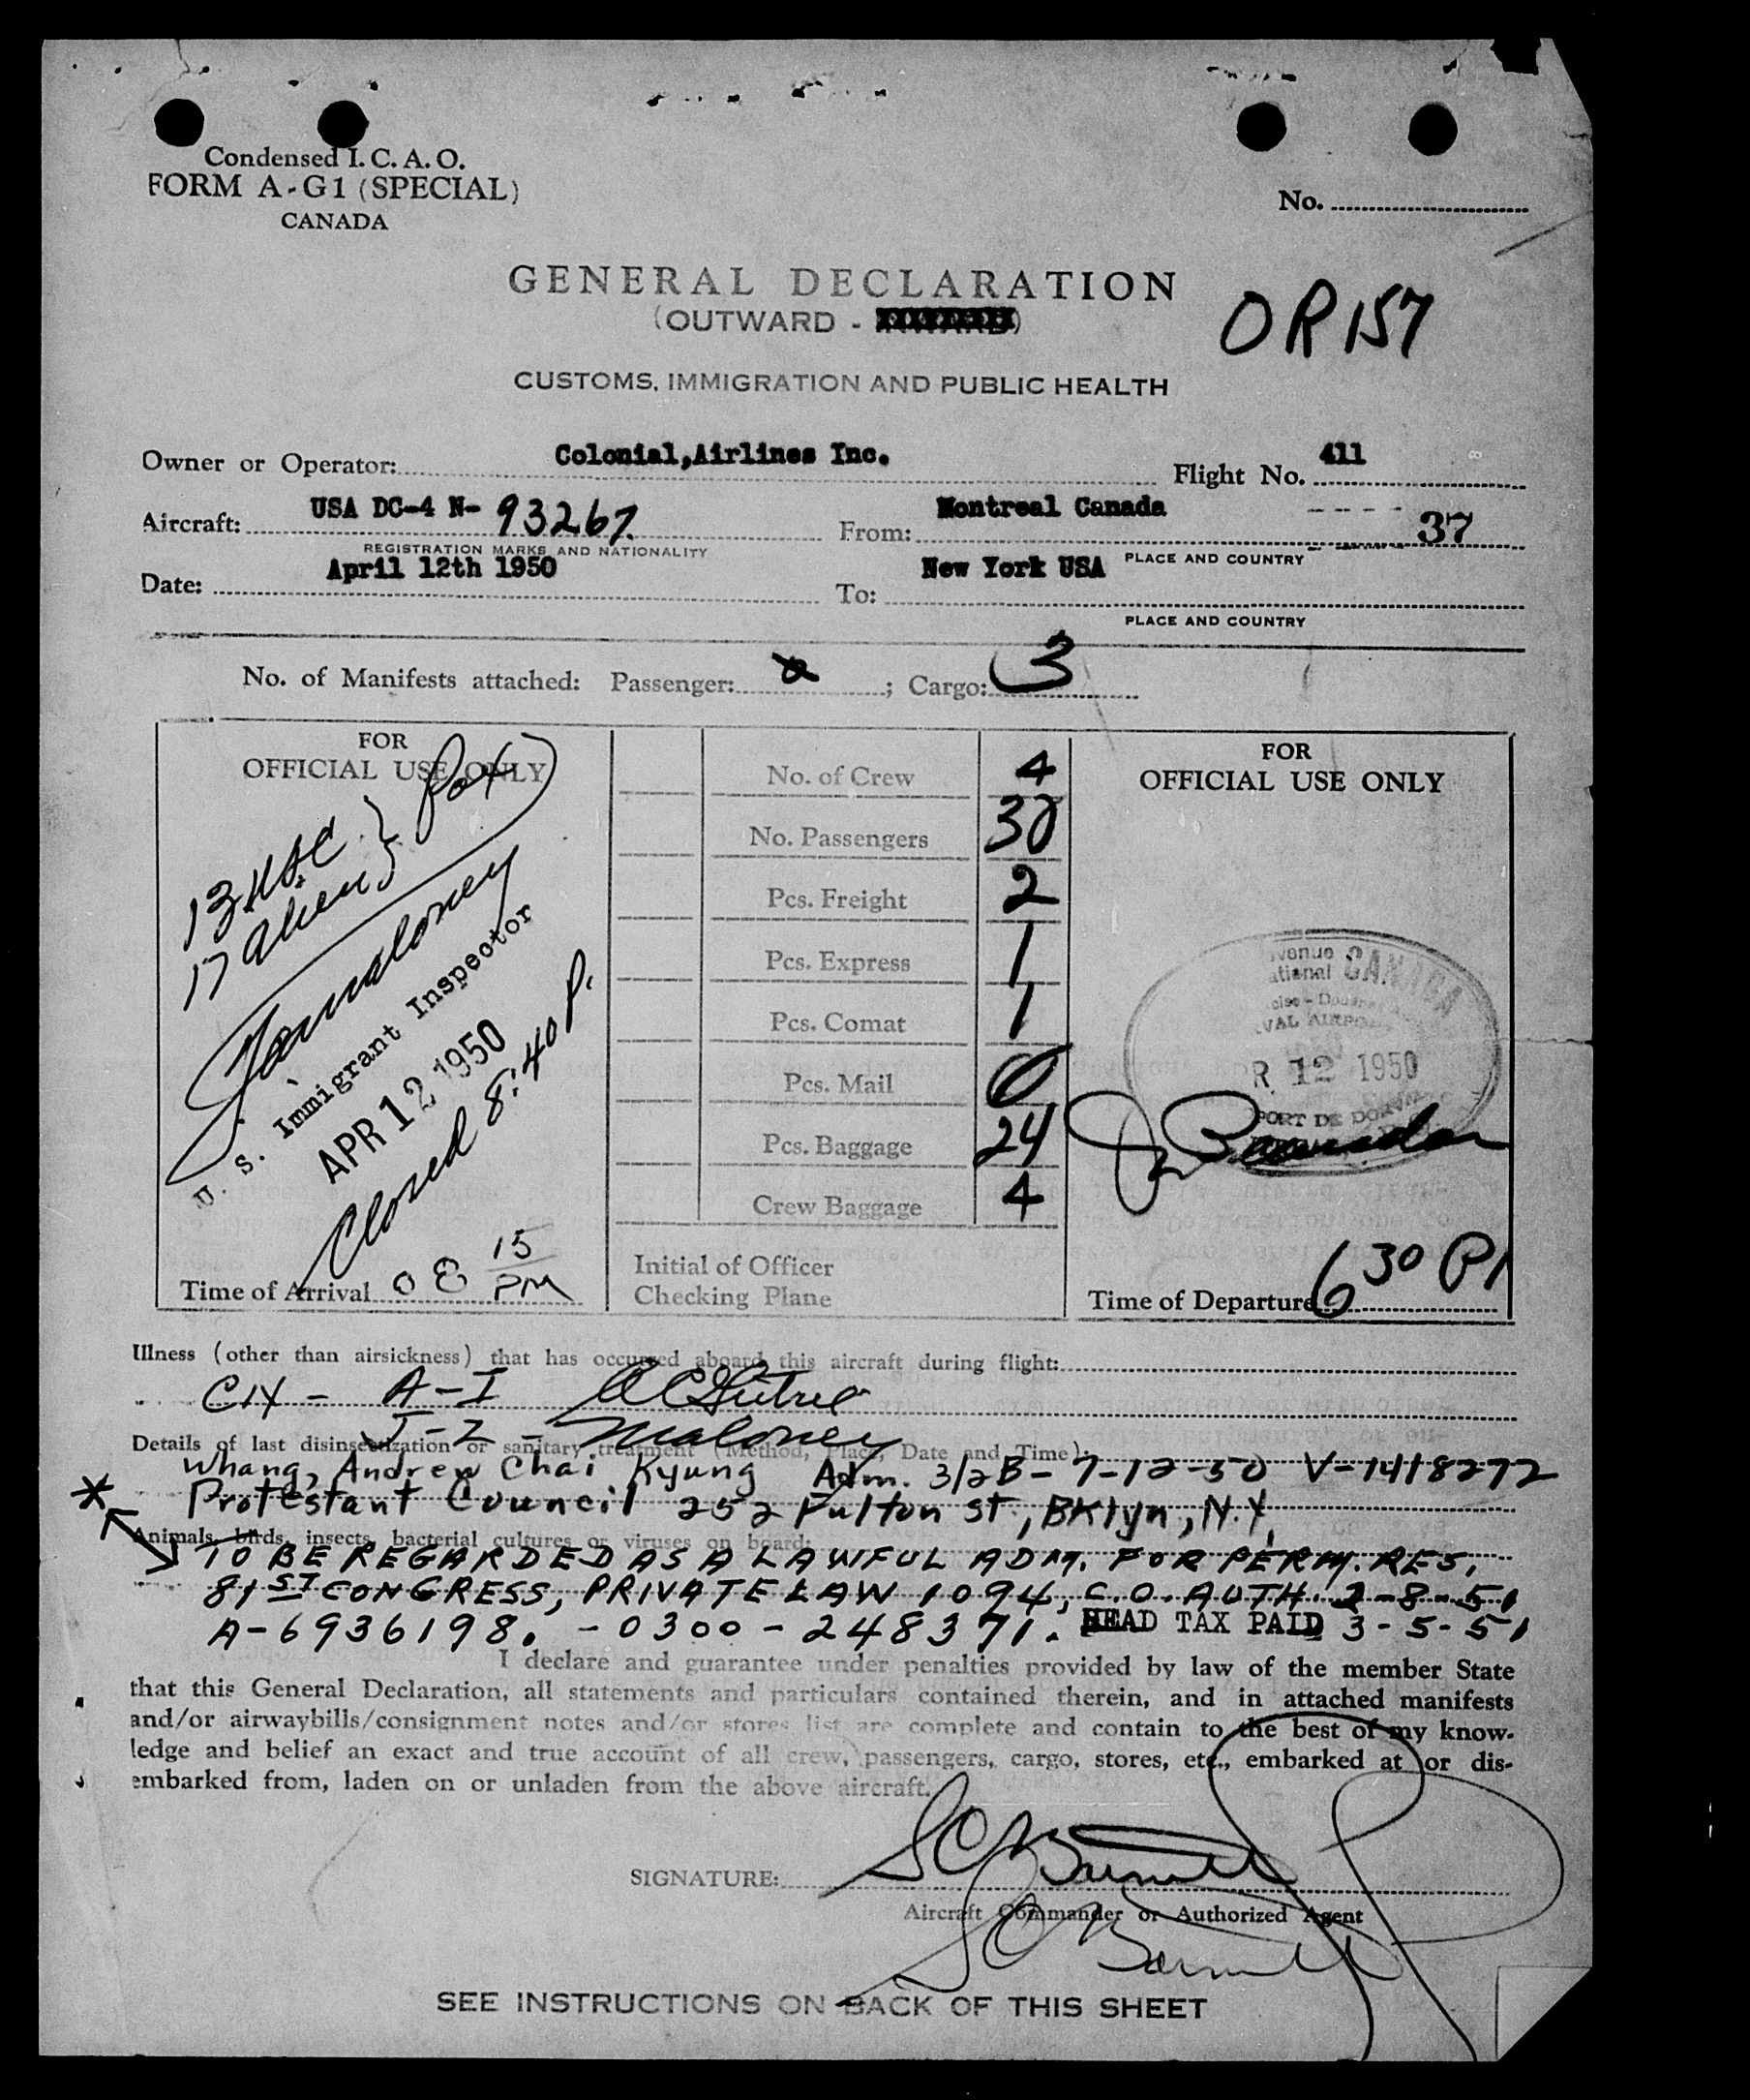 Condensed I. C. A. O.
FORM A-G1 (SPECIAL)
CANADA
No.
GENERAL DECLARATION
(OUTWARD -
OR157
CUSTOMS, IMMIGRATION AND PUBLIC HEALTH
Owner or Operator: Colonial,Airlines Inc. Flight No. 411
Aircraft: USA DC-4 N- 93267. From: Montreal Canada 37
REGISTRATION MARKS AND NATIONALITY PLACE AND COUNTRY
Date: April 12th 1950 To: New York USA
PLACE AND COUNTRY
No. of Manifests attached: Passenger: ; Cargo: 3
FOR
OFFICIAL USE ONLY
13 USC } Pax
17 alien
Maloney
U. S. Immigrant Inspector
APR 12 1950
Closed 8:40 P.
Time of Arrival 08 15 PM
No. of Crew 4
No. Passengers 30
Pcs. Freight 2
Pcs. Express 1
Pcs. Comat 1
Pcs. Mail 0
Pcs. Baggage 24
Crew Baggage 4
Initial of Officer
Checking Plane
FOR
OFFICIAL USE ONLY
CANADA
R 12 1950
PORT DE DORVAL
Time of Departure 6 30 P
Illness (other than airsickness) that has occurred aboard this aircraft during flight:
A-I
I-Z - Maloney
Details of last disinsectization or sanitary treatment (Method, Place, Date and Time):
Whang, Andrew Chai Kyung Adm. 3/2B-7-12-50 V-1418272
* Protestant Council 252 Fulton st., BKlyn, N.Y.
Animals, birds, insects, bacterial cultures or viruses on board:
TO BE REGARDED AS A LAWFUL ADM. FOR PERM. RES.
81ST CONGRESS, PRIVATE LAW 1094, C.O. AUTH. 2-8-51
A-6936198. -0300-248371. HEAD TAX PAID 3-5-51
I declare and guarantee under penalties provided by law of the member State
that this General Declaration, all statements and particulars contained therein, and in attached manifests
and/or airwaybills/consignment notes and/or stores list are complete and contain to the best of my know-
ledge and belief an exact and true account of all crew, passengers, cargo, stores, etc., embarked at or dis-
embarked from, laden on or unladen from the above aircraft.
SIGNATURE:
Aircraft Commander or Authorized Agent
SEE INSTRUCTIONS ON BACK OF THIS SHEET